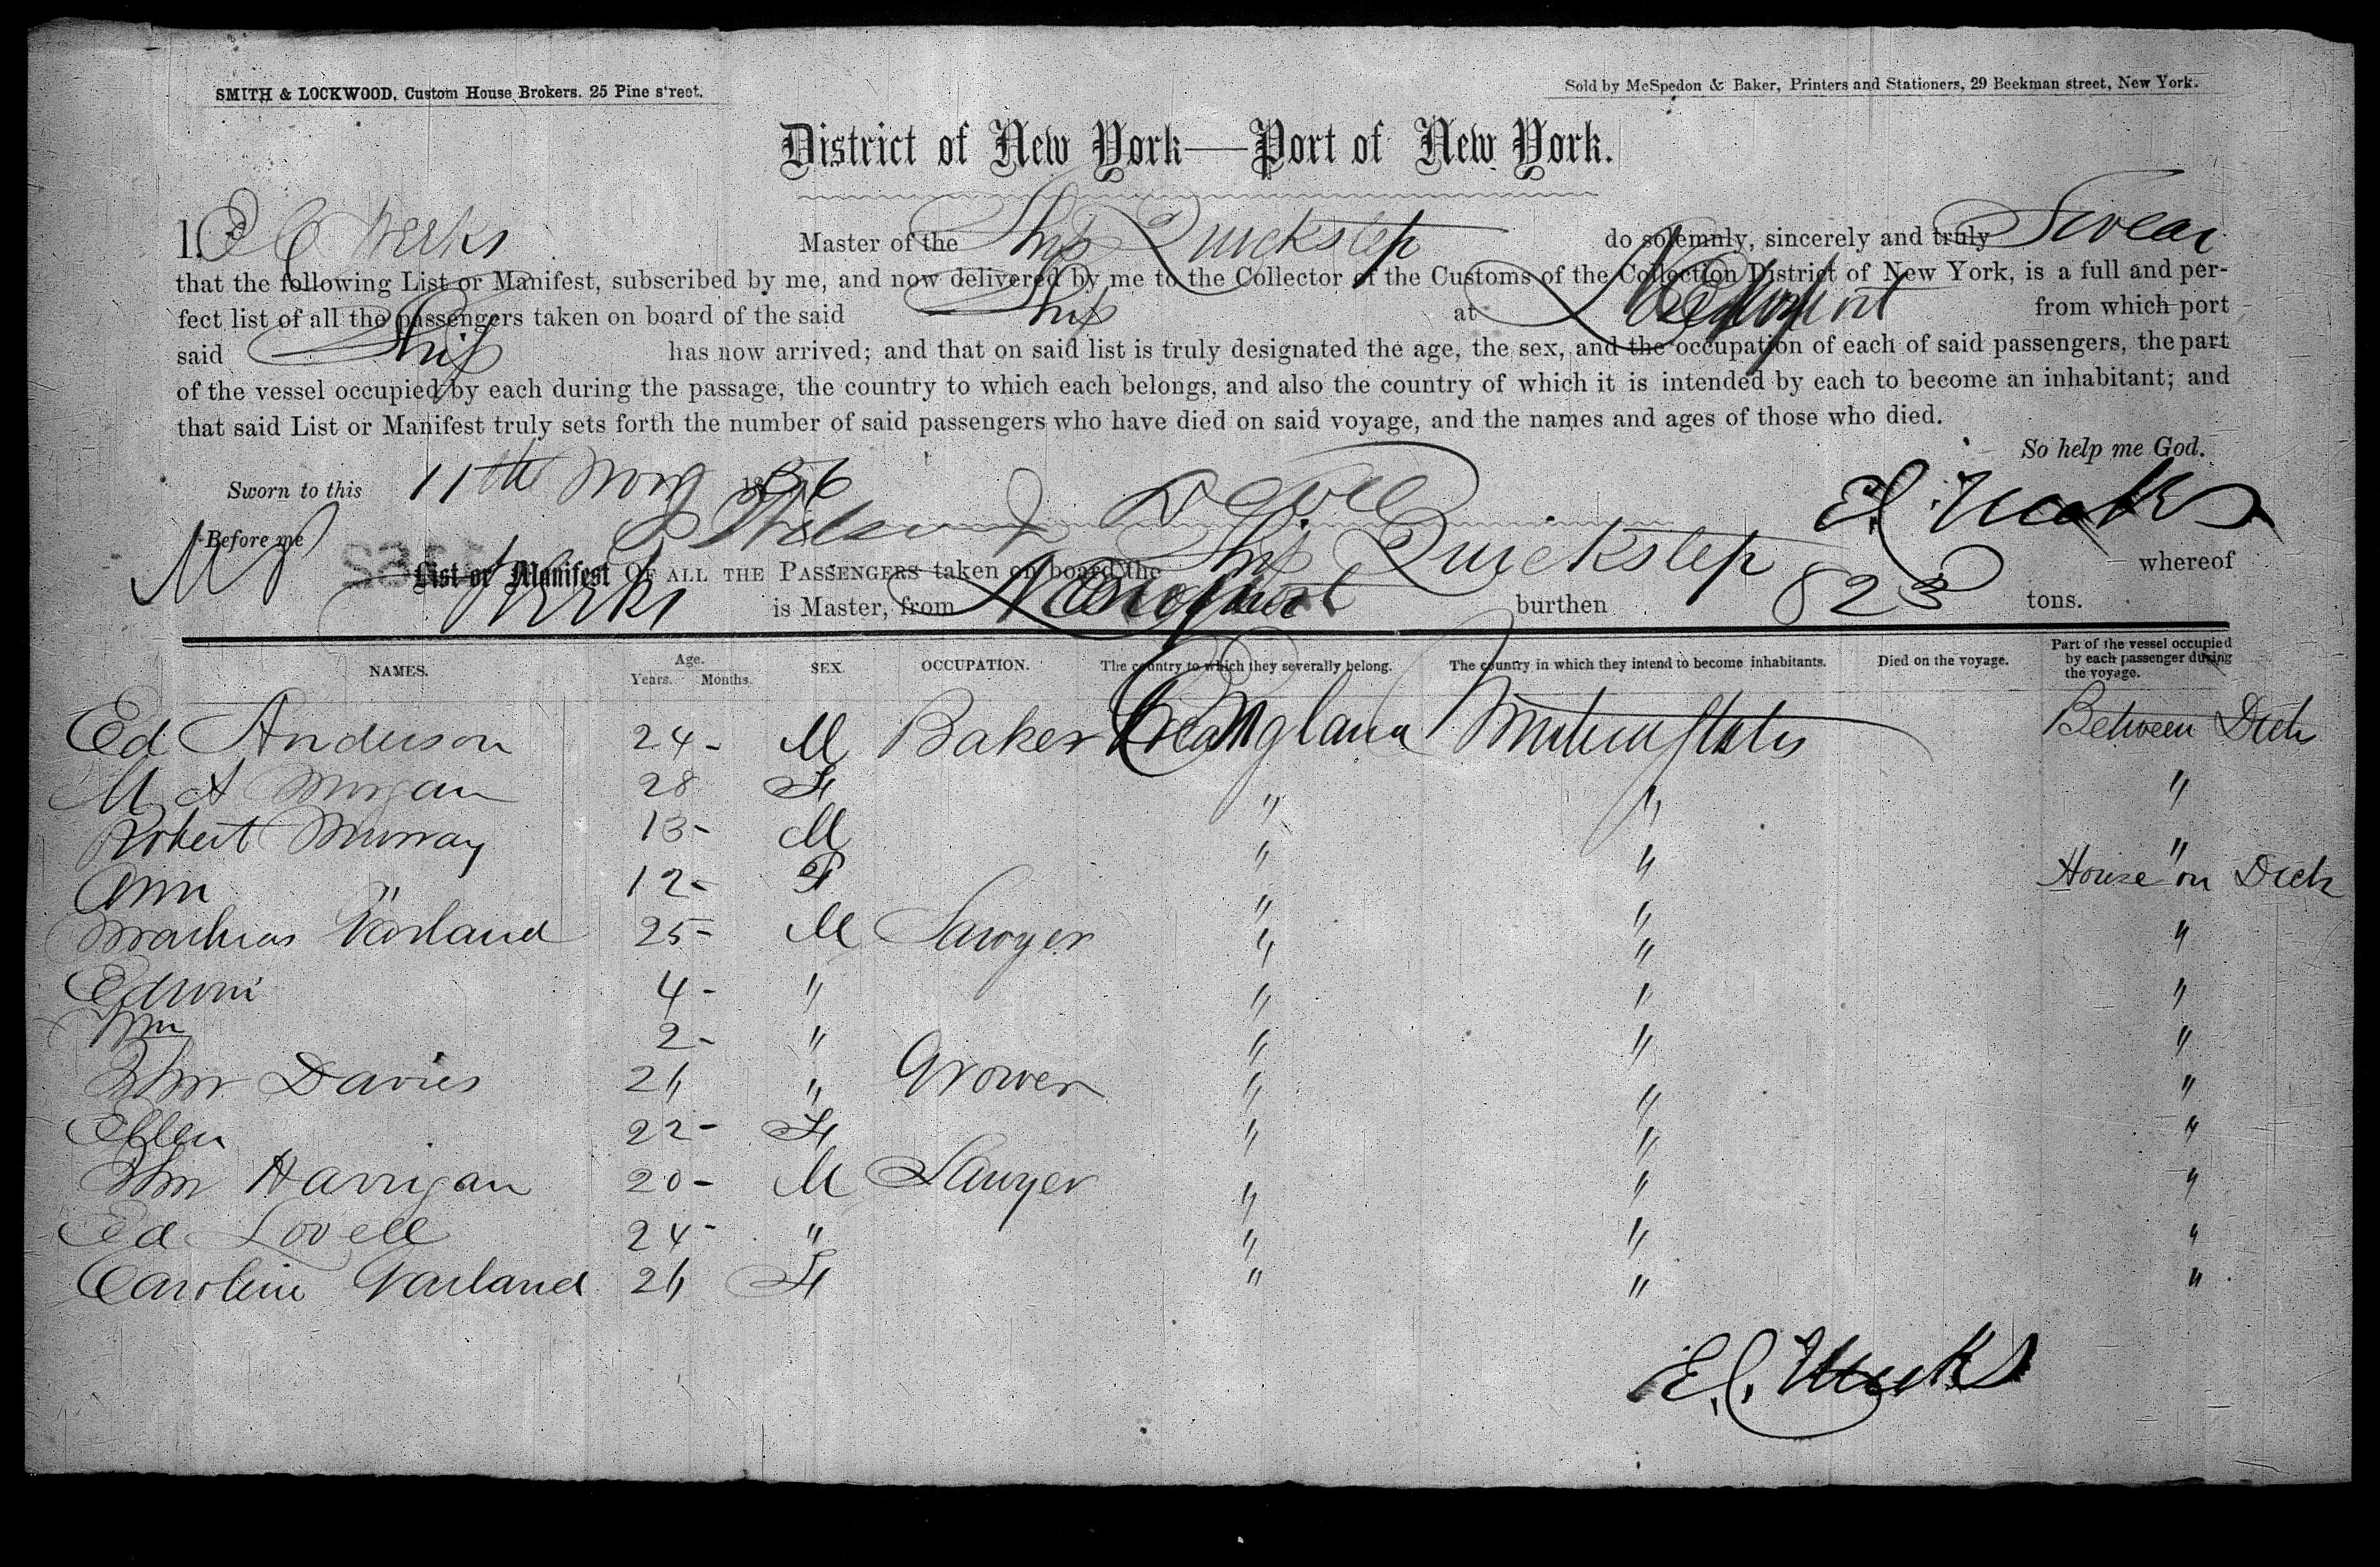 SMITH & LOCKWOOD, Custom House Brokers. 25 Pine street.
Sold by McSpedon & Baker, Printers and Stationers, 29 Beekman street, New York.
District of New York—Port of New York.
I, E C Weeks Master of the Ship Quickstep do solemnly, sincerely and truly Swear
that the following List or Manifest, subscribed by me, and now delivered by me to the Collector of the Customs of the Collection District of New York, is a full and per-
fect list of all the passengers taken on board of the said Ship at Newport from which port
said Ship has now arrived; and that on said list is truly designated the age, the sex, and the occupation of each of said passengers, the part
of the vessel occupied by each during the passage, the country to which each belongs, and also the country of which it is intended by each to become an inhabitant; and
that said List or Manifest truly sets forth the number of said passengers who have died on said voyage, and the names and ages of those who died.
So help me God.
Sworn to this 11th 1856
E. C. Weeks
Before me
List or Manifest OF ALL THE PASSENGERS taken on board the Ship Quickstep whereof
Weeks is Master, from Newport burthen 823 tons.
NAMES. Age. Years. Months. SEX. OCCUPATION. The country to which they severally belong. The country in which they intend to become inhabitants. Died on the voyage. Part of the vessel occupied by each passenger during the voyage.
Ed Anderson 24 - M Baker England United States Between Deck
M A Morgan 28 F " " "
Robert Murray 13 - M " " "
Ann " 12 - F " " House on Deck
Mathias Garland 25 - M Sawyer " " "
Edwin 4 - " " " "
Wm 2 - " " " "
Thos Davies 21 " Grower " " "
Ellen 22 - F " " "
Harrigan 20 - M Sawyer " " "
Ed Lovell 24 - " " " "
Caroline Garland 21 F " " "
E. C. Weeks